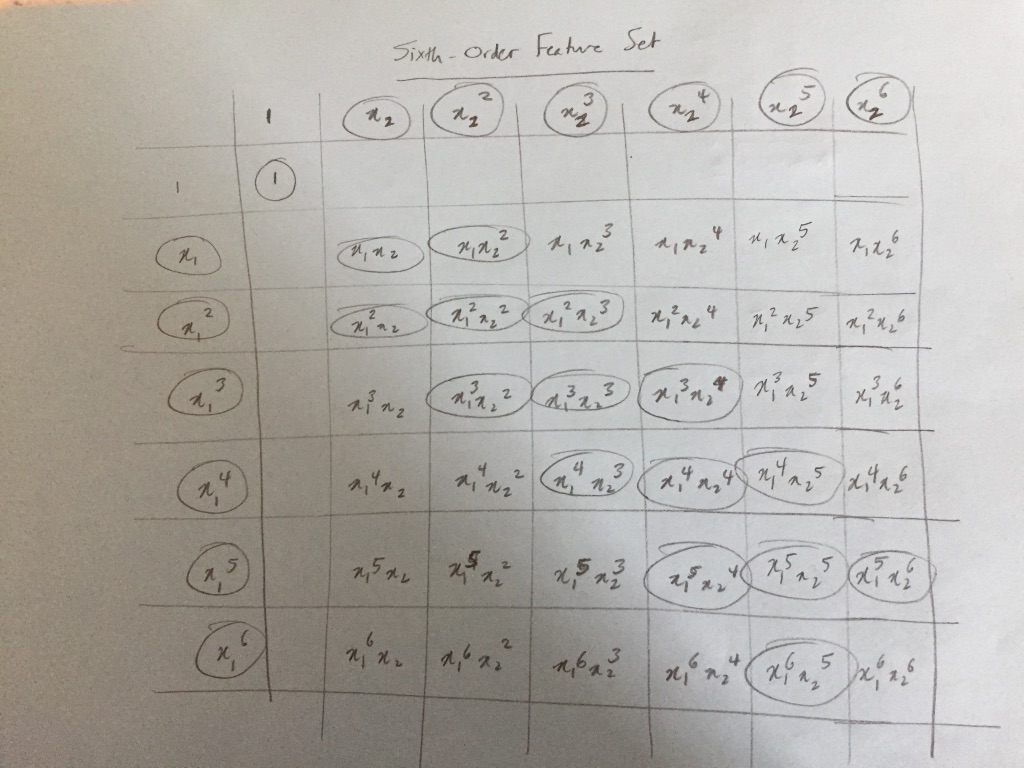 Sixth-Order Feature Set
1 x₂ x₂² x₂³ x₂⁴ x₂⁵ x₂⁶
1 1
x₁ x₁x₂ x₁x₂² x₁x₂³ x₁x₂⁴ x₁x₂⁵ x₁x₂⁶
x₁² x₁²x₂ x₁²x₂² x₁²x₂³ x₁²x₂⁴ x₁²x₂⁵ x₁²x₂⁶
x₁³ x₁³x₂ x₁³x₂² x₁³x₂³ x₁³x₂⁴ x₁³x₂⁵ x₁³x₂⁶
x₁⁴ x₁⁴x₂ x₁⁴x₂² x₁⁴x₂³ x₁⁴x₂⁴ x₁⁴x₂⁵ x₁⁴x₂⁶
x₁⁵ x₁⁵x₂ x₁⁵x₂² x₁⁵x₂³ x₁⁵x₂⁴ x₁⁵x₂⁵ x₁⁵x₂⁶
x₁⁶ x₁⁶x₂ x₁⁶x₂² x₁⁶x₂³ x₁⁶x₂⁴ x₁⁶x₂⁵ x₁⁶x₂⁶